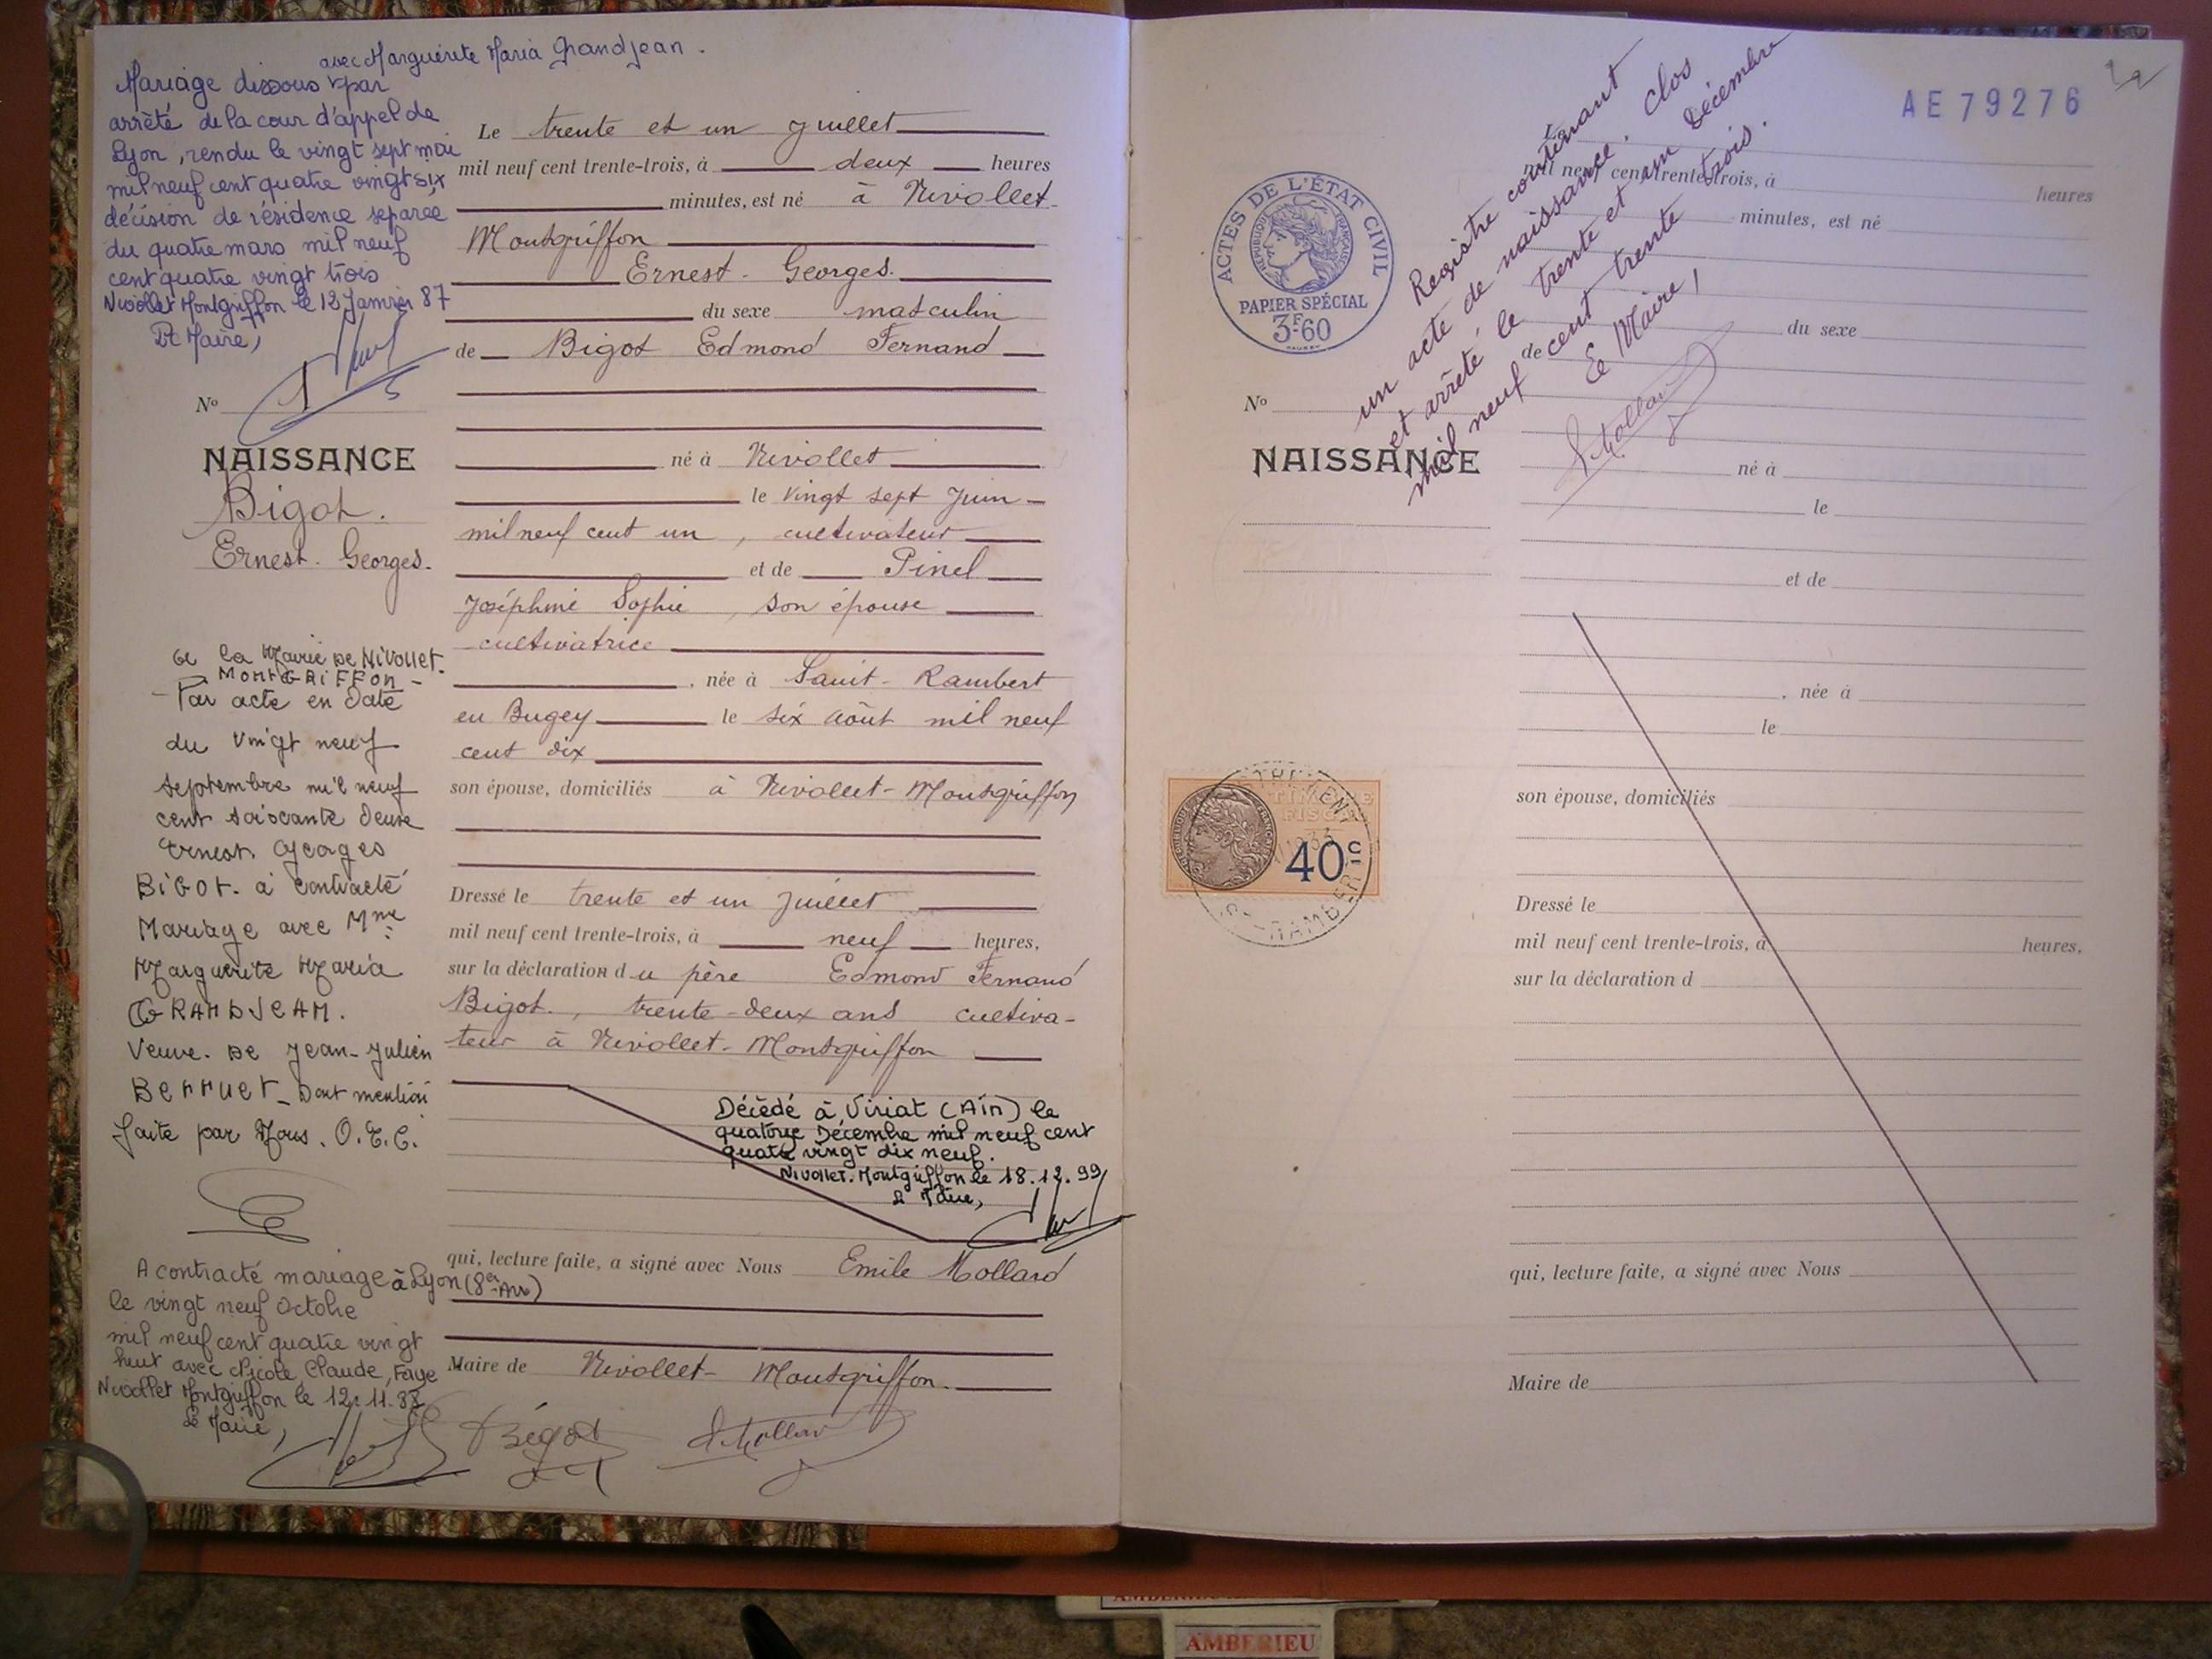 avec Marguerite Maria Grandjean.
Mariage dissous par
arrêté de la cour d'appel de
Lyon, rendu le vingt sept mai
mil neuf cent quatre vingt six
décision de résidence séparée
du quatre mars mil neuf
cent quatre vingt trois
Nivollet Montgriffon le 12 Janvier 87
Le Maire,
No 1
NAISSANCE
Bigot.
Ernest. Georges.
de la Mairie de NIVOLLET.
MONTGRIFFON -
Par acte en date
du vingt neuf
septembre mil neuf
cent soixante deux
Ernest. Georges
BIGOT. a contracté
Mariage avec Mme
Marguerite Maria
GRANDJEAN.
Veuve. de Jean-Julien
Dont mention
faite par Nous. O.E.C.
A contracté mariage à Lyon (8e Arr)
le vingt neuf Octobre
mil neuf cent quatre vingt
huit avec Nicole, Claude, Faye
Nivollet Montgriffon le 12.11.88
Le Maire,
Le trente et un Juillet
mil neuf cent trente-trois, à deux heures
minutes, est né à Nivollet-
Montgriffon
Ernest-Georges.
du sexe masculin
de Bigot Edmond Fernand
né à Nivollet
le vingt sept Juin
mil neuf cent un, cultivateur
et de Pinel
Joséphine Sophie, son épouse
cultivatrice
, née à Saint-Rambert
en Bugey le six août mil neuf
cent dix
son épouse, domiciliés à Nivollet-Montgriffon
Dressé le trente et un Juillet
mil neuf cent trente-trois, à neuf heures,
sur la déclaration du père Edmond Fernand
Bigot, trente-deux ans cultiva-
teur à Nivollet-Montgriffon
Décédé à Viriat (Ain) le
quatorze Décembre mil neuf cent
quatre vingt dix neuf.
Nivollet-Montgriffon le 18.12.99
Le Maire,
qui, lecture faite, a signé avec Nous Emile Mollard
Maire de Nivollet-Montgriffon.
Bigot
E Mollard
AE 79276
Registre contenant
un acte de naissance. Clos
et arrêté le trente et un Décembre
mil neuf cent trente trois.
Le Maire,
E Mollard
ACTES DE L'ÉTAT CIVIL
RÉPUBLIQUE FRANÇAISE
PAPIER SPÉCIAL
3F.60
mil neuf cent trente-trois, à heures
minutes, est né
du sexe
de
No
NAISSANCE
né à
le
et de
, née à
le
TIMBRE
FISCAL
40c
son épouse, domiciliés
Dressé le
mil neuf cent trente-trois, à heures,
sur la déclaration d
qui, lecture faite, a signé avec Nous
Maire de
AMBERIEU